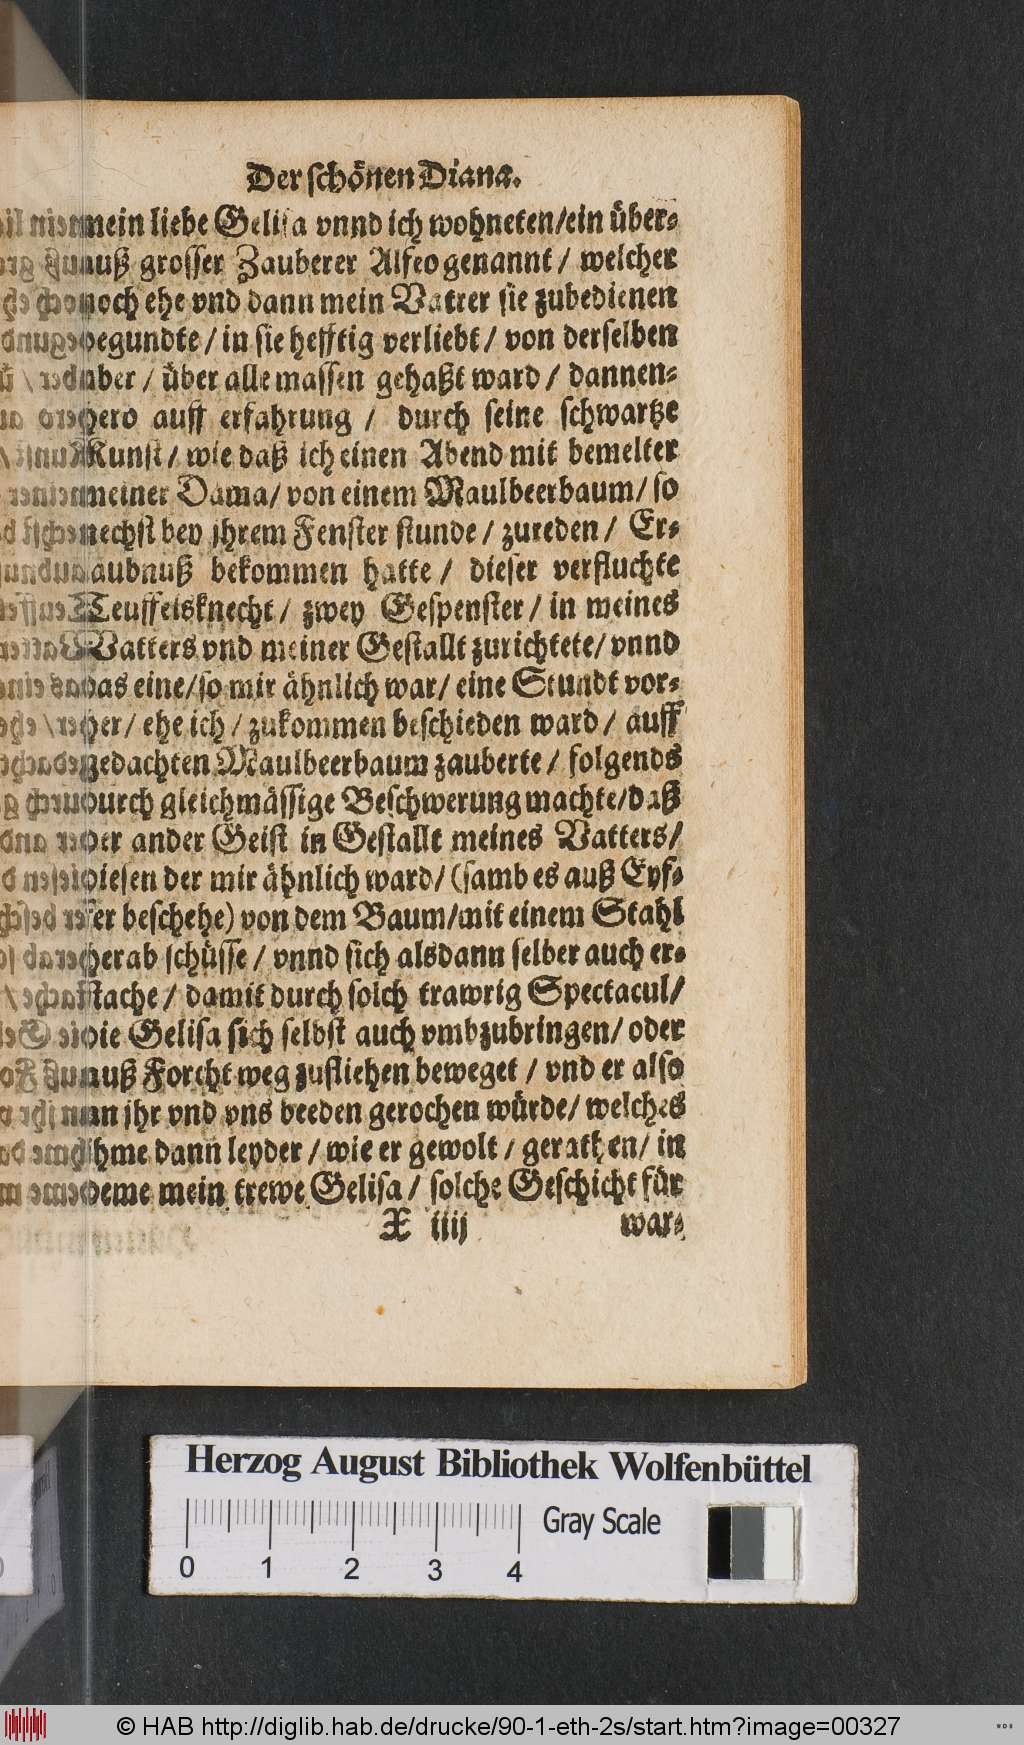 Der schönen Diana.
mein liebe Gelisa vnnd ich wohneten/ein über-
auß grosser Zauberer Alfeo genannt / welcher
noch ehe vnd dann mein Vatter sie zubedienen
begundte / in sie hefftig verliebt / von derselben
aber / über alle massen gehaßt ward / dannen-
hero auff erfahrung / durch seine schwartze
Kunst / wie daß ich einen Abend mit bemelter
meiner Dama / von einem Maulbeerbaum / so
nechst bey jhrem Fenster stunde / zureden / Er-
laubnuß bekommen hatte / dieser verfluchte
Teuffelsknecht / zwey Gespenster / in meines
Vatters vnd meiner Gestallt zurichtete / vnnd
das eine / so mir ähnlich war / eine Stundt vor-
her / ehe ich / zukommen beschieden ward / auff
gedachten Maulbeerbaum zauberte / folgends
durch gleichmässige Beschwerung machte/daß
der ander Geist in Gestallt meines Vatters/
diesen der mir ähnlich ward / (samb es auß Eyf-
fer beschehe) von dem Baum/mit einem Stahl
herab schüsse / vnnd sich alsdann selber auch er-
stache / damit durch solch trawrig Spectacul/
die Gelisa sich selbst auch vmbzubringen / oder
auß Forcht weg zufliehen beweget / vnd er also
an jhr vnd vns beeden gerochen würde / welches
ihme dann leyder / wie er gewolt / gerathen / in
deme mein trewe Gelisa / solche Geschicht für
X iiij war-
Herzog August Bibliothek Wolfenbüttel
Gray Scale
0 1 2 3 4
© HAB http://diglib.hab.de/drucke/90-1-eth-2s/start.htm?image=00327